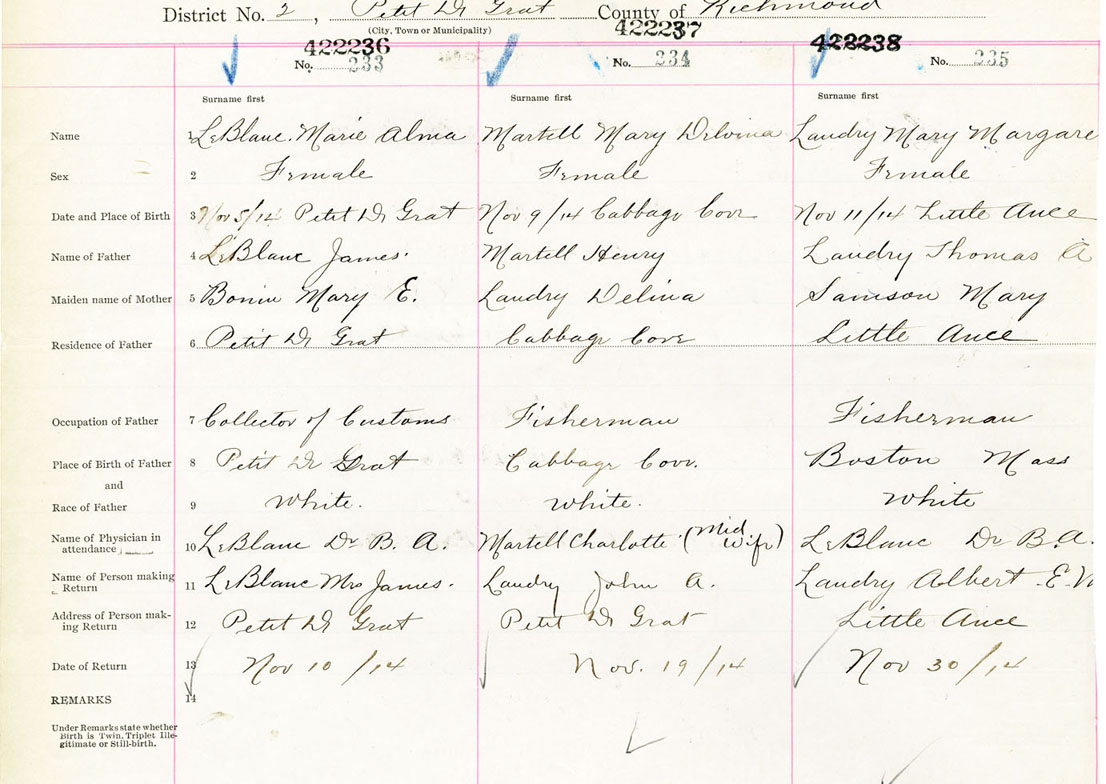 District No. 2, Petit De Grat County of Richmond
(City, Town or Municipality)
422236 422237 422238
No. 233 No. 234 No. 235
Surname first Surname first Surname first
Name 1 LeBlanc. Marie Alma Martell Mary Delvina Landry Mary Margare
Sex 2 Female Female Female
Date and Place of Birth 3 Nov 5/14 Petit De Grat Nov 9/14 Cabbage Cove Nov 11/14 Little Ance
Name of Father 4 LeBlanc James. Martell Henry Landry Thomas A
Maiden name of Mother 5 Bonin Mary E. Landry Delina Samson Mary
Residence of Father 6 Petit De Grat Cabbage Cove Little Ance
Occupation of Father 7 Collector of Customs Fisherman Fisherman
Place of Birth of Father 8 Petit De Grat Cabbage Cove. Boston Mass
and
Race of Father 9 White. White. White
Name of Physician in attendance 10 LeBlanc Dr B. A. Martell Charlotte (Mid Wife) LeBlanc Dr B.A.
Name of Person making Return 11 LeBlanc Mrs James. Landry John A. Landry Albert E.
Address of Person mak-ing Return 12 Petit De Grat Petit De Grat Little Ance
Date of Return 13 Nov 10 /14 Nov. 19/14 Nov 30/14
REMARKS 14
Under Remarks state whether
Birth is Twin, Triplet Ille-
gitimate or Still-birth.